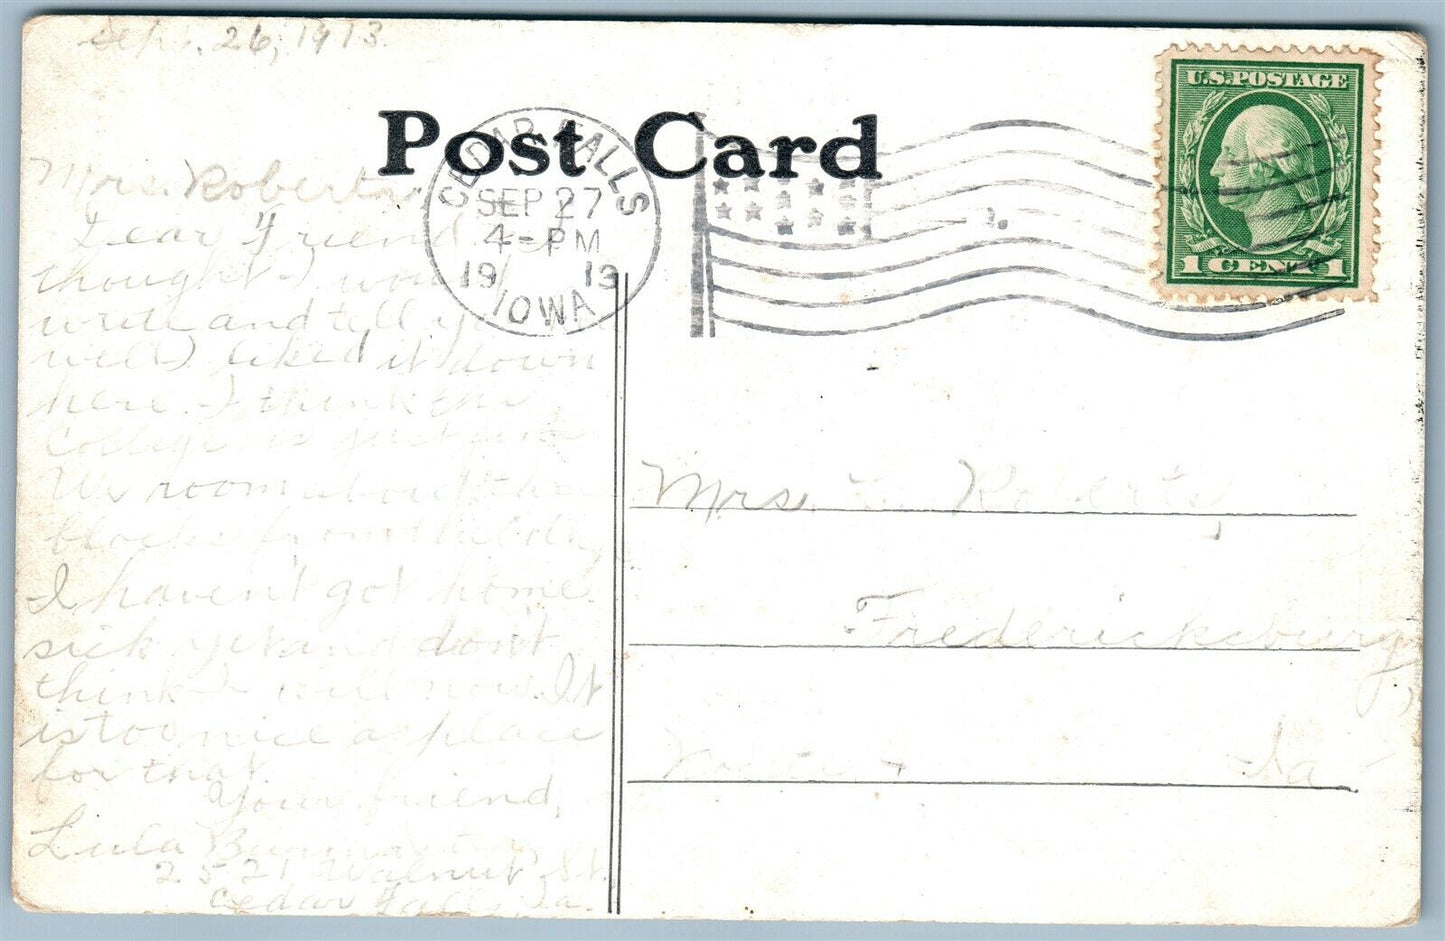 Sept. 26, 1913
Post Card
U.S. POSTAGE
1 CENT 1
CEDAR FALLS
SEP 27
4-PM
1913
IOWA
Mrs. Roberts,
Dear Friend
thought I
write and tell
well I liked it down
here. I think the
College is just
We room about
blocks from the
I haven't got home
sick yet and don't
think I will now. It
is too nice a place
for that.
Your friend,
Lula
2521 Walnut St.
Cedar Falls, Ia.
Mrs. L. Roberts,
Fredericksburg,
Ia